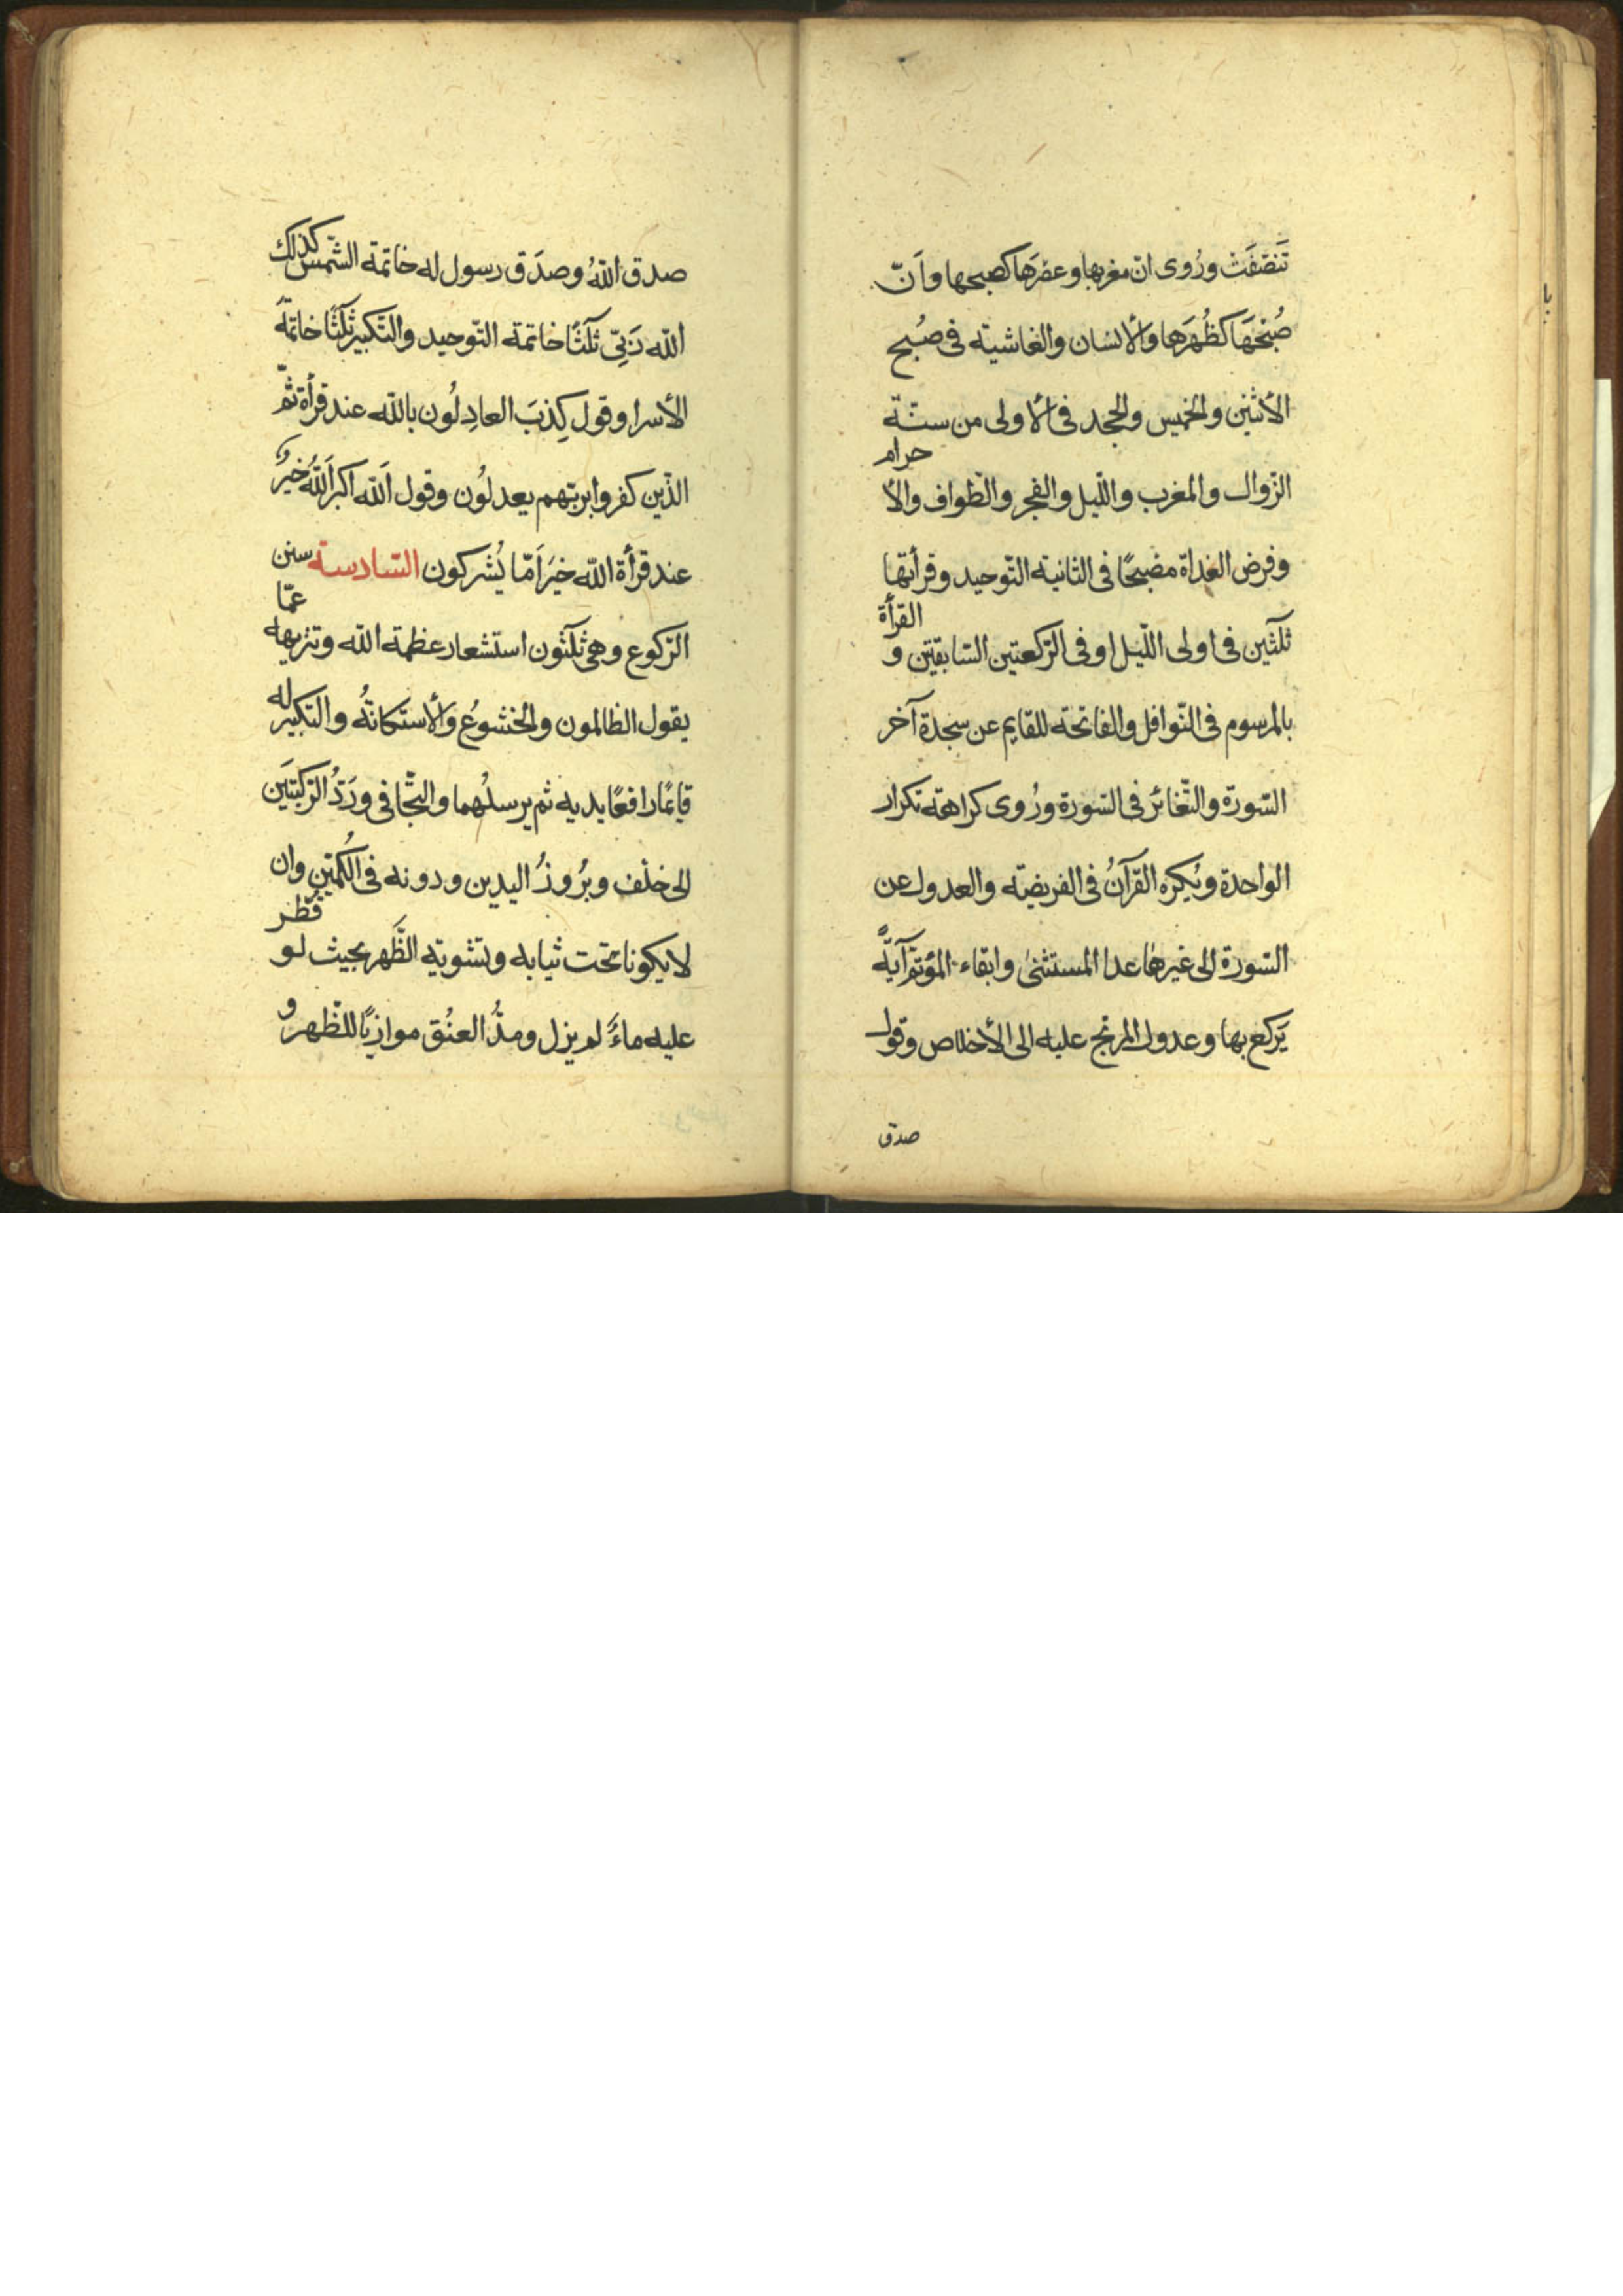 تَنَصَّفَتْ ورُوى انّ مغربها وعصرَها كصبحها واَنّ
صُبْحَهَا كظُهرَها والأنسان والغاشية فى صُبح
الأثنين والخميس والجحد فى الأولى من ستّة
الزوال والمغرب واللّيل والفجر والطواف والأ حرام
وفرض الغداة مصبحًا فى الثانية التّوحيد وقرأتها
ثلثين فى اولى اللّيل او فى الرّكعتين السّابقتين و القرأة
بالمرسوم فى النّوافل والفاتحة للقايم عن سجدة آخر
السّورة والتّغائر فى السّورة ورُوى كراهة تكرار
الواحدة ويُكره القرآنُ فى الفريضة والعدول عن
السّورة الى غيرها عدا المستثنىٰ وابقاء المؤتم آيةً
يَركع بها وعدول المرتج عليه الى الأخلاص وقول
صدق
صدق اللهُ وصدَق رسول له خاتمة الشّمس كذلك
اللّه رَبّى ثلثًا خاتمة التّوحيد والتّكبير ثلثًا خاتمة
الأسرا وقول كذبَ العادِلُون بالله عند قرأة ثمّ
الذّين كفروا بربّهم يعدلُون وقول اَللّه اكبر اَللّهُ خيرٌ
عند قرأة اللّه خيرَ اَمّا يُشركون السّادسة سنن
الرّكوع وهى ثلثون استشعار عظمة اللّه وتنزيهه عمّا
يقول الظالمون والخشوعُ والأستكانةُ والتكبير له
قايمًا رافعًا يديه ثم يرسلُهما والتجّافى ورَدُّ الرّكبتَين
الى خلف وبرُوزُ اليدين ودونه فى الكُمّين وان
لا يكونا تحت ثيابه وتسوية الظَّهر بحيث لو قُطر
عليه ماءٌ لم يزل ومدُّ العنُق موازيًا للظّهر و